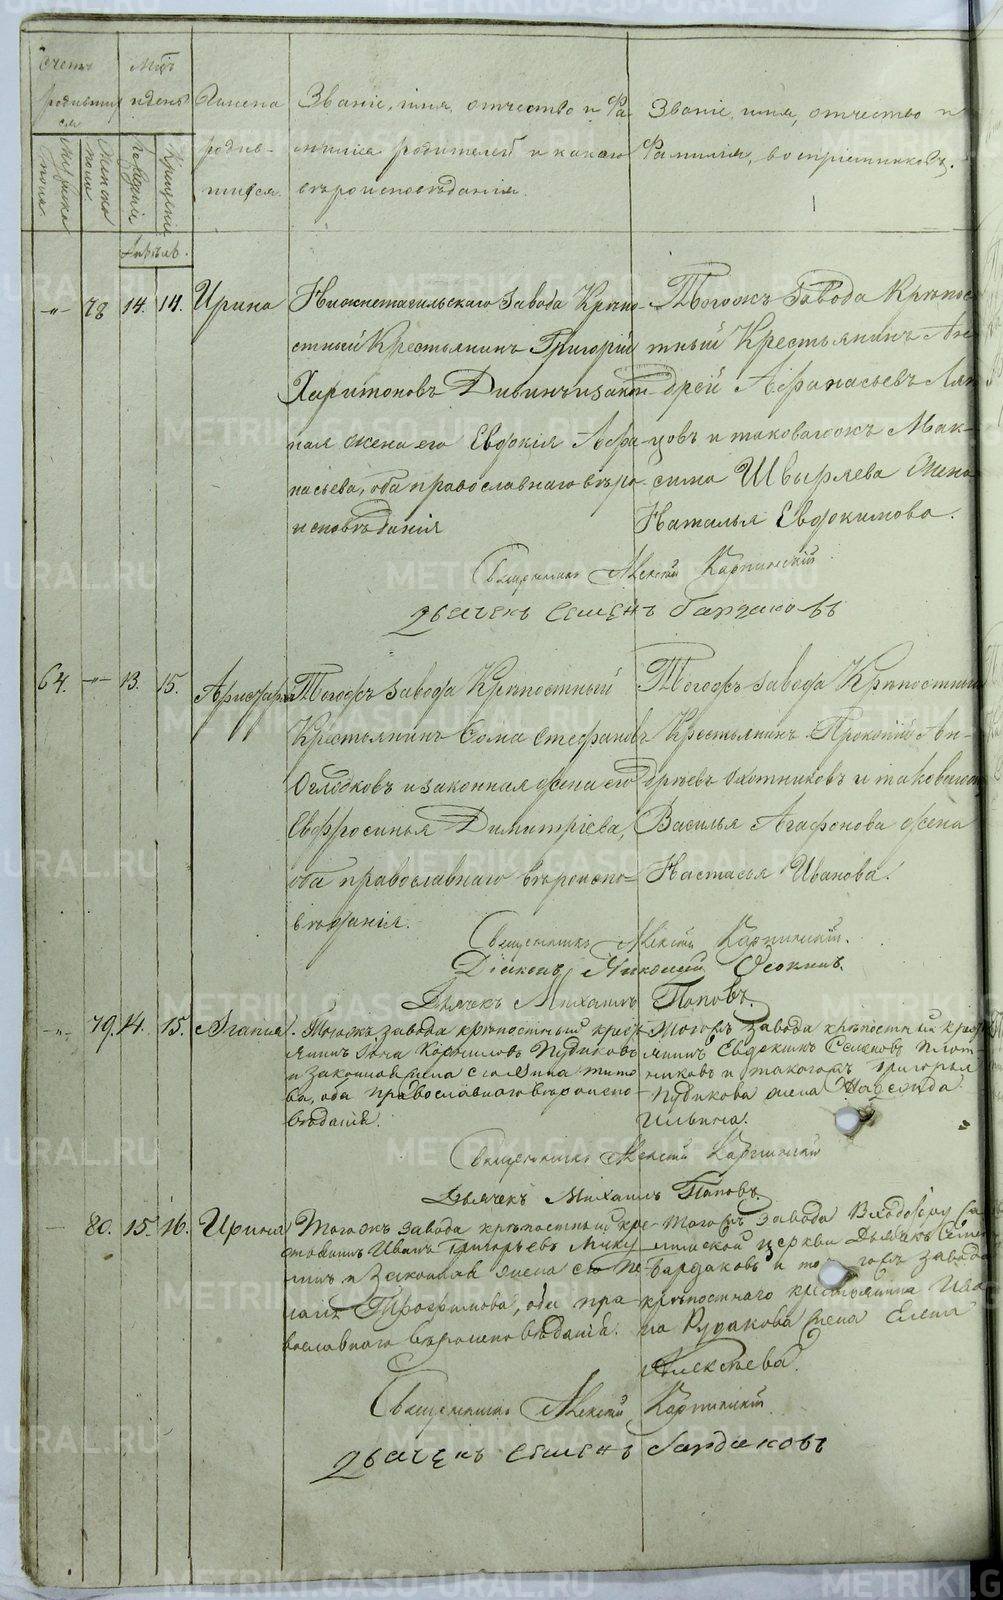 Счетъ родившихся
Мѣс. и день
Имена родившихся.
Званіе, имя, отчество и Фамилія родителей и какого вѣроисповѣданія.
Званіе, имя, отчество и Фамилія, воспріемниковъ.
Мужска пола
Женска пола
рожденія
крещенія
Апрѣль.
-"- 78 14. 14. Ирина
Нижнетагильскаго завода Крѣпо-
стный Крестьянинъ Григорій
Харитоновъ Дивинъ и закон-
ная жена его Евдокія Афа-
насьева, оба православнаго вѣро-
исповѣданія
Тогожъ завода Крѣпос-
тный Крестьянинъ Ан-
дрей Афанасьевъ
цовъ и таковагожъ Мак-
сима Швыряева Жена
Наталья Евдокимова.
Священникъ Алексій Карпинскій
Дьячекъ Семенъ Бардаковъ
64. -"- 13. 15.
Тогожъ завода Крѣпостный
Крестьянинъ Сома Стефановъ
Оглодковъ и законная жена его
Евфросинья Димитріева,
оба православнаго вѣроиспо-
вѣданія.
Тогожъ завода Крѣпостный
Крестьянинъ Прокопій Ан-
дрѣевъ Охотниковъ и таковагожъ
Василья Агафонова жена
Настасья Иванова.
Священникъ Алексій Карпинскій.
Діаконъ Николай Осокинъ.
Дьячекъ Михаилъ Поповъ.
-"- 79. 14. 15. Агапія.
Тогожъ завода крѣпостный крест-
янинъ Корниловъ Пудиковъ
и законная жена его Анна Тито-
ва, оба православнаго вѣроиспо-
вѣданія.
Тогожъ завода крѣпостный крест-
янинъ Евдокимъ Семеновъ Плот-
никовъ и такогожъ Григорья
Пудикова жена Надежда
Ильина.
Священникъ Алексій Карпинскій
Дьячекъ Михаилъ Поповъ.
80. 15. 16. Ирина
Тогожъ завода крѣпостный кре-
стьянинъ Иванъ Григорьевъ
и Законная жена его Пе-
лагія Трофимова, оба пра-
вославнаго вѣроисповѣданія.
Тогожъ завода Входоіеруса-
лимской церкви Дьячекъ Семенъ
Бардаковъ и тогожъ завода
крѣпостнаго крестьянина Ива-
на Рудакова Жена Елена
Алексѣева.
Священникъ Алексій Карпинскій.
Дьячекъ Семенъ Бардаковъ
METRIKI.GASO-URAL.RU